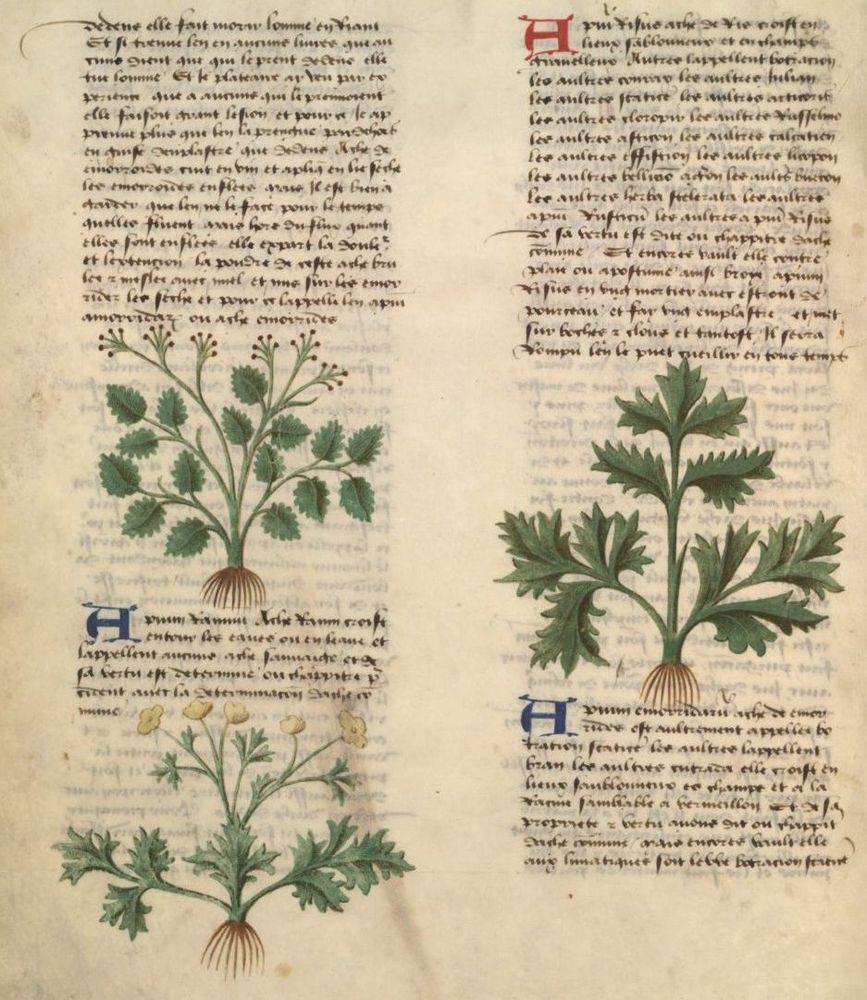 dedens elle fait morir lomme en Riant
Et si treuve len en aucuns livres que au
cuns dient que qui le prent dedens elle
tue lomme Et le plateaire a veu par ex
perience que a aucuns qui le prennoient
elle faisoit grant lesion et pour ce le ap
preuve plus que len la prengne par dehors
en guise demplastre que dedens Ache de
emorroides cuit en vin et apliq en lie seche
les emorroides enflees mais Il est bien a
garder que len ne le face pour le temps
quelles fluent mais hors du flux quant
elles sont enflees elle expart la doule
et lextencion la poudre de ceste ache bru
lee z meslee avec miel et mis sur les emor
rides les seche et pour ce lappelle len apiu
amorridarz ou ache emorrides
Apium Ranini Ache Ranin croist
entour les eaues ou en leaue et
lappellent aucuns ache sauvaige et de
sa vertu est determine ou chappitre p
cident avec la determinacon dache co
mune
Apiu Risus ache de Ris croist en
lieux sablonneux et en champs
gravelleux Autres lappellent botracion
les aultres les aultres Iulian
les aultres statice les aultres
les aultres cloropis les aultres
les aultres les aultres
les aultres effistion les aultres licopon
les aultres les aults
les aultres herba scelerata les aultres
apiu Rusticu les aultres apiu Risus
De sa vertu est dite ou chappitre dache
comune Et encores vault elle contre
plau ou apostume ainsi broye apium
Risus en ung mortier avec estront de
pourceau et fay ung emplastre et met
sur boches z clous et tantost Il sera
Rompu len le puet cueillir en tous temps
Apium emorridaru ache de emor
rides est aultrement appellee bo
tration statice les aultres lappellent
bran les aultres elle croist en
lieux sanblonneux es champs et a la
Racine samblable a vermeillon Et de sa
propriete z vertu avons dit ou chappit
dache comune mais encores vault elle
aux lunatiques soit levve botracion statice